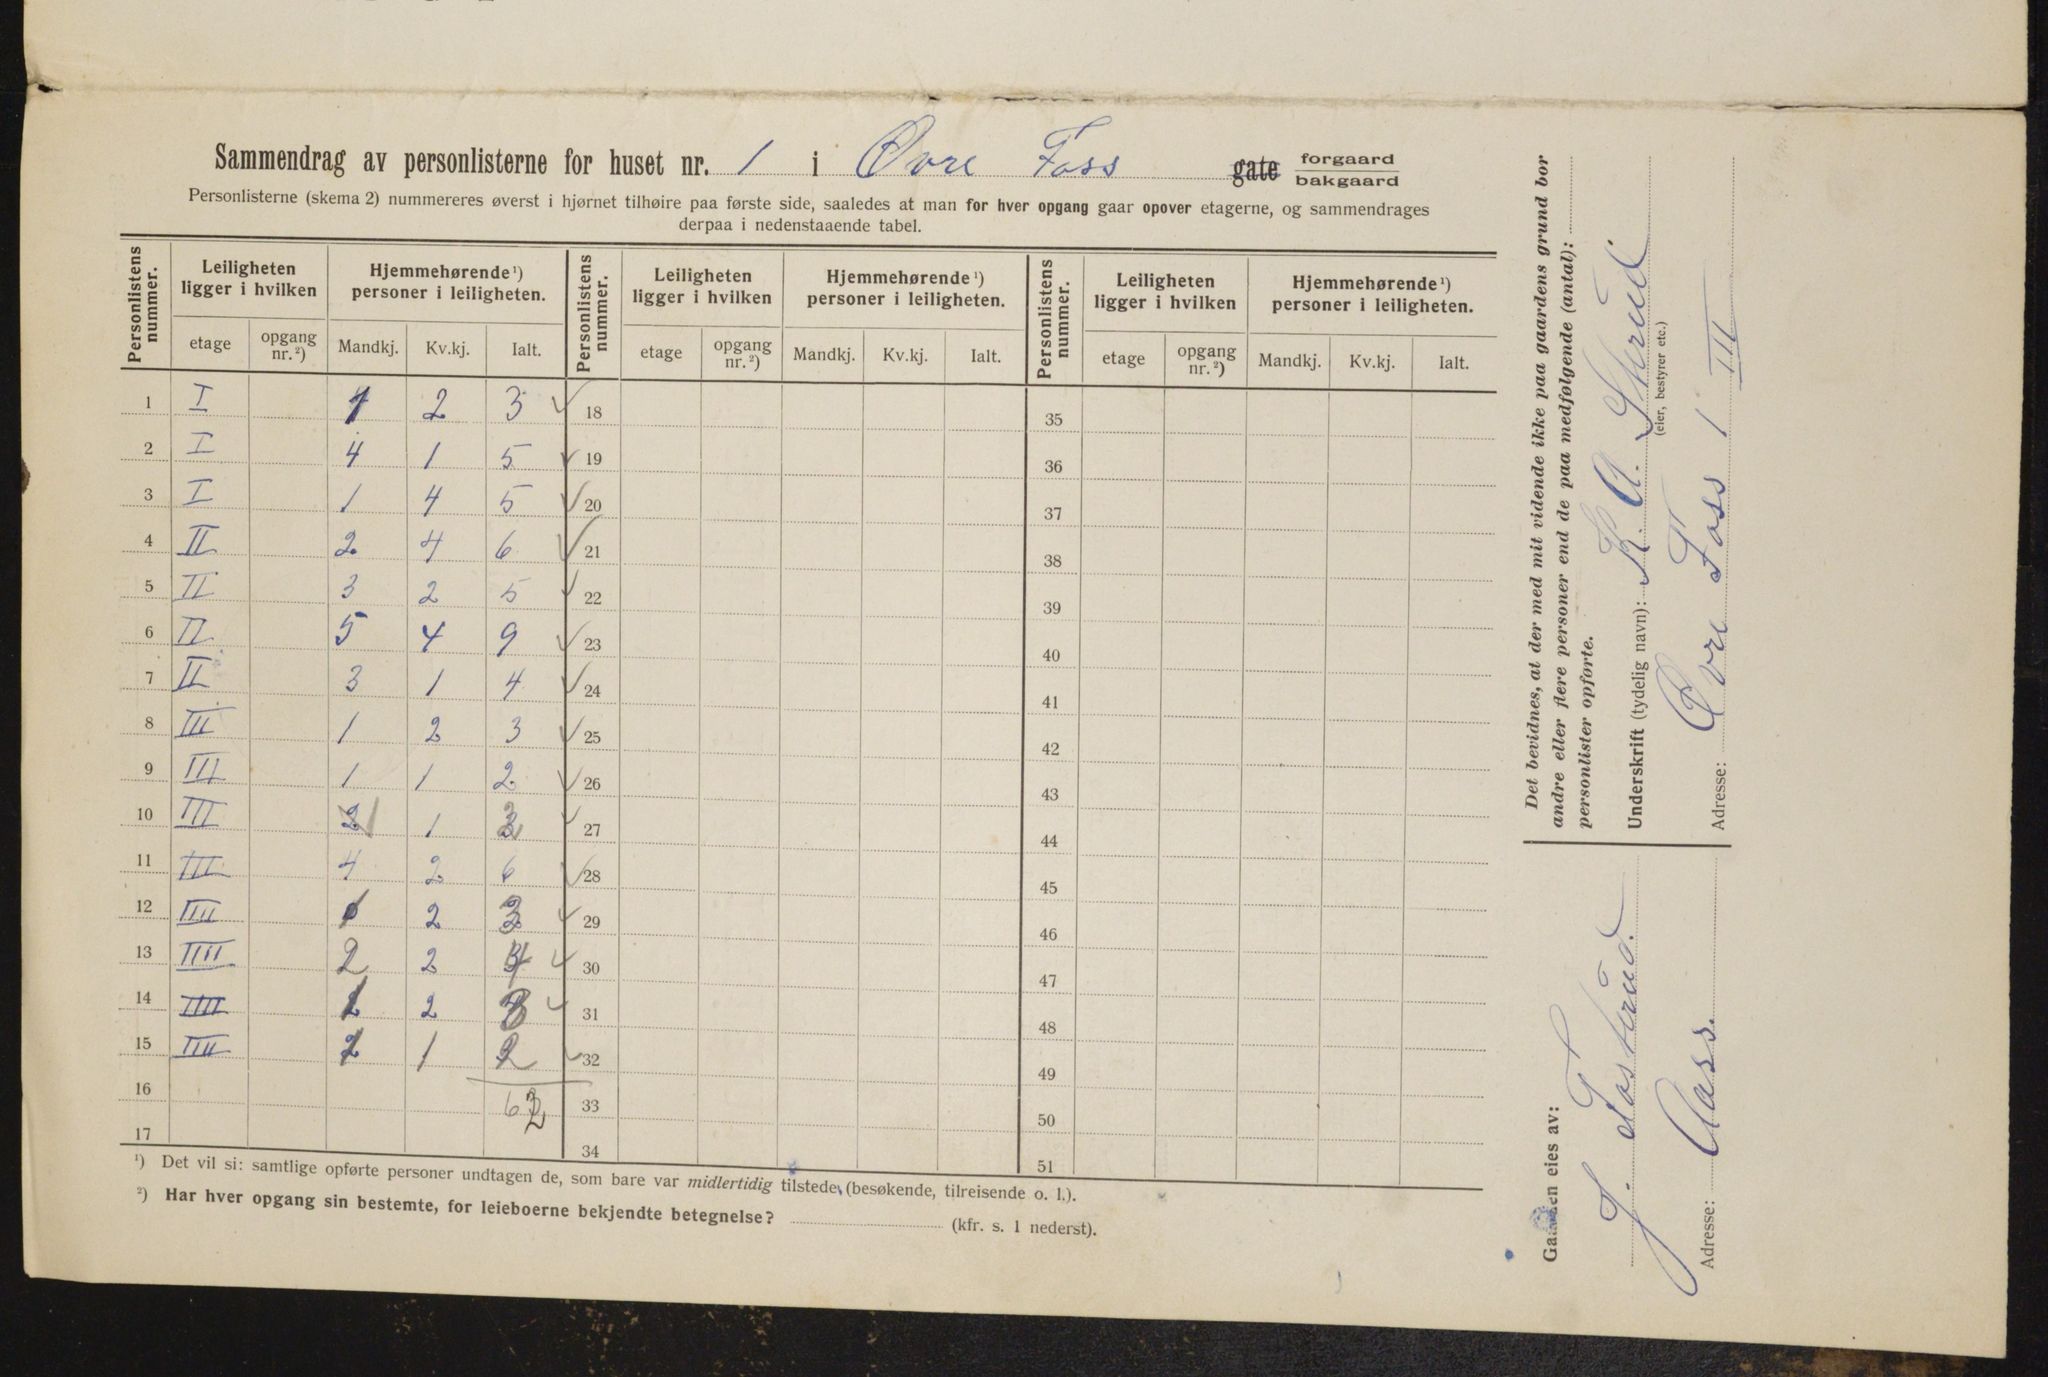 Sammendrag av personlisterne for huset nr. 1 i Øvre Foss gate forgaard bakgaard
Personlisterne (skema 2) nummereres øverst i hjørnet tilhøire paa første side, saaledes at man for hver opgang gaar opover etagerne, og sammendrages
derpaa i nedenstaaende tabel.
Personlistens nummer. Leiligheten ligger i hvilken Hjemmehørende¹) personer i leiligheten. Personlistens nummer. Leiligheten ligger i hvilken Hjemmehørende¹) personer i leiligheten. Personlistens nummer. Leiligheten ligger i hvilken Hjemmehørende¹) personer i leiligheten.
etage opgang nr.²) Mandkj. Kv.kj. Ialt. etage opgang nr.²) Mandkj. Kv.kj. Ialt. etage opgang nr.²) Mandkj. Kv.kj. Ialt.
1 I 1 2 3 18 35
2 I 4 1 5 19 36
3 I 1 4 5 20 37
4 II 2 4 6 21 38
5 II 3 2 5 22 39
6 II 5 4 9 23 40
7 II 3 1 4 24 41
8 III 1 2 3 25 42
9 III 1 1 2 26 43
10 III 1 1 2 27 44
11 III 4 2 6 28 45
12 IIII 1 2 3 29 46
13 IIII 2 2 4 30 47
14 IIII 1 2 3 31 48
15 IIII 1 1 2 32 49
16 62 33 50
17 34 51
¹) Det vil si: samtlige opførte personer undtagen de, som bare var midlertidig tilstede (besøkende, tilreisende o. l.).
²) Har hver opgang sin bestemte, for leieboerne bekjendte betegnelse? (kfr. s. 1 nederst).
Det bevidnes, at der med mit vidende ikke paa gaardens grund bor
andre eller flere personer end de paa medfølgende (antal):
personlister opførte.
Underskrift (tydelig navn): K. A. Skrud
(eier, bestyrer etc.)
Adresse: Øvre Foss 1 III
Gaarden eies av:
J. Fosterud.
Adresse: Aass.